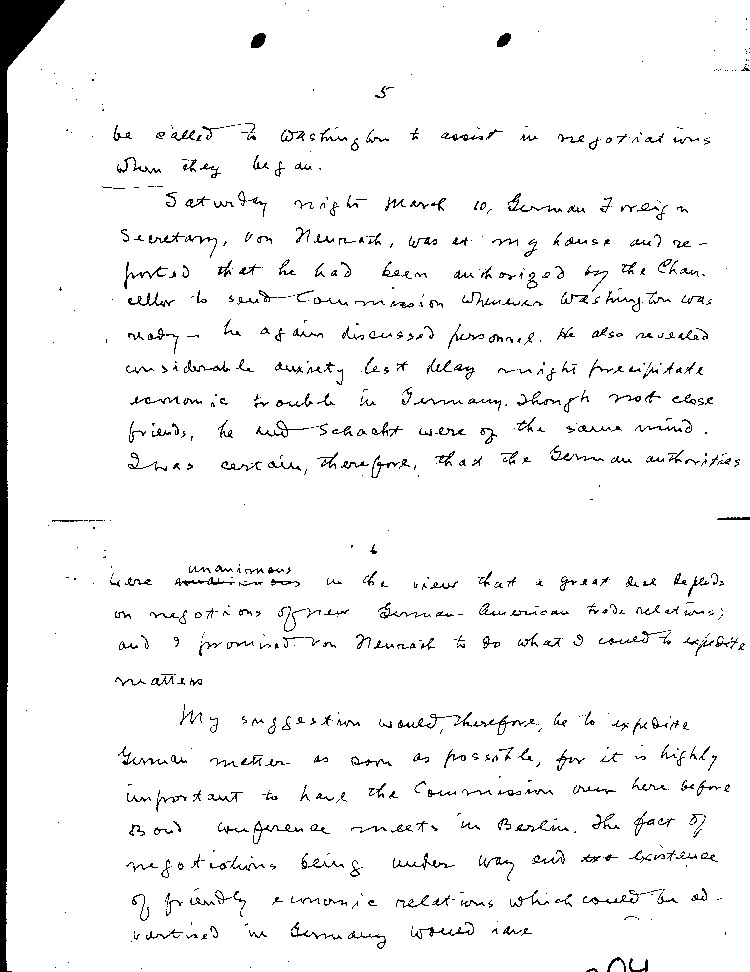 5
be called to Washington to assist in negotiations
when they began.
Saturday night March 10, German Foreign
Secretary, von Neurath, was at my house and re-
ported that he had been authorized by the Chan-
cellor to send Commission whenever Washington was
ready - he again discussed personnel. He also revealed
considerable anxiety lest delay might precipitate
economic trouble in Germany. Though not close
friends, he and Schacht were of the same mind.
I was certain, therefore, that the German authorities
6
unanimous
were in the view that a great deal depends
on negotions of new German-American trade relations;
and I promised von Neurath to do what I could to expedite
matters
My suggestion would, therefore, be to expedite
German matter as soon as possible, for it is highly
important to have the Commission over here before
Bond conference meets in Berlin. The fact of
negotiations being under way and existence
of friendly economic relations which could be ad-
vertised in Germany would
204